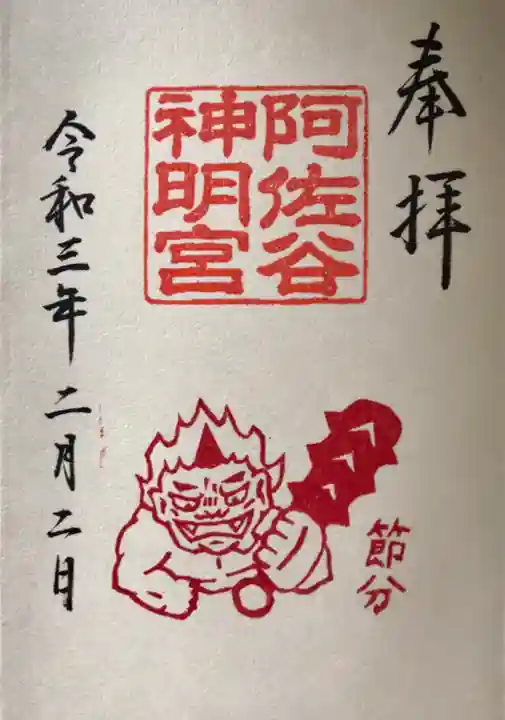 奉拝
阿佐谷
神明宮
節分
令和三年二月二日